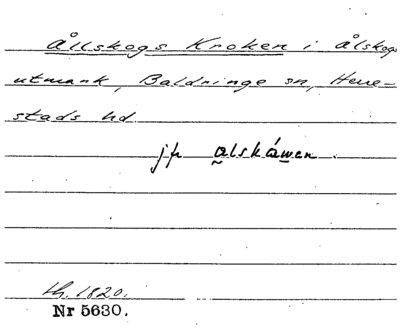 Ållskogs Kroken i Ålskogs
utmark, Baldringe sn, Herre-
stads hd
jfr ålskáwen.
Nr 5630.